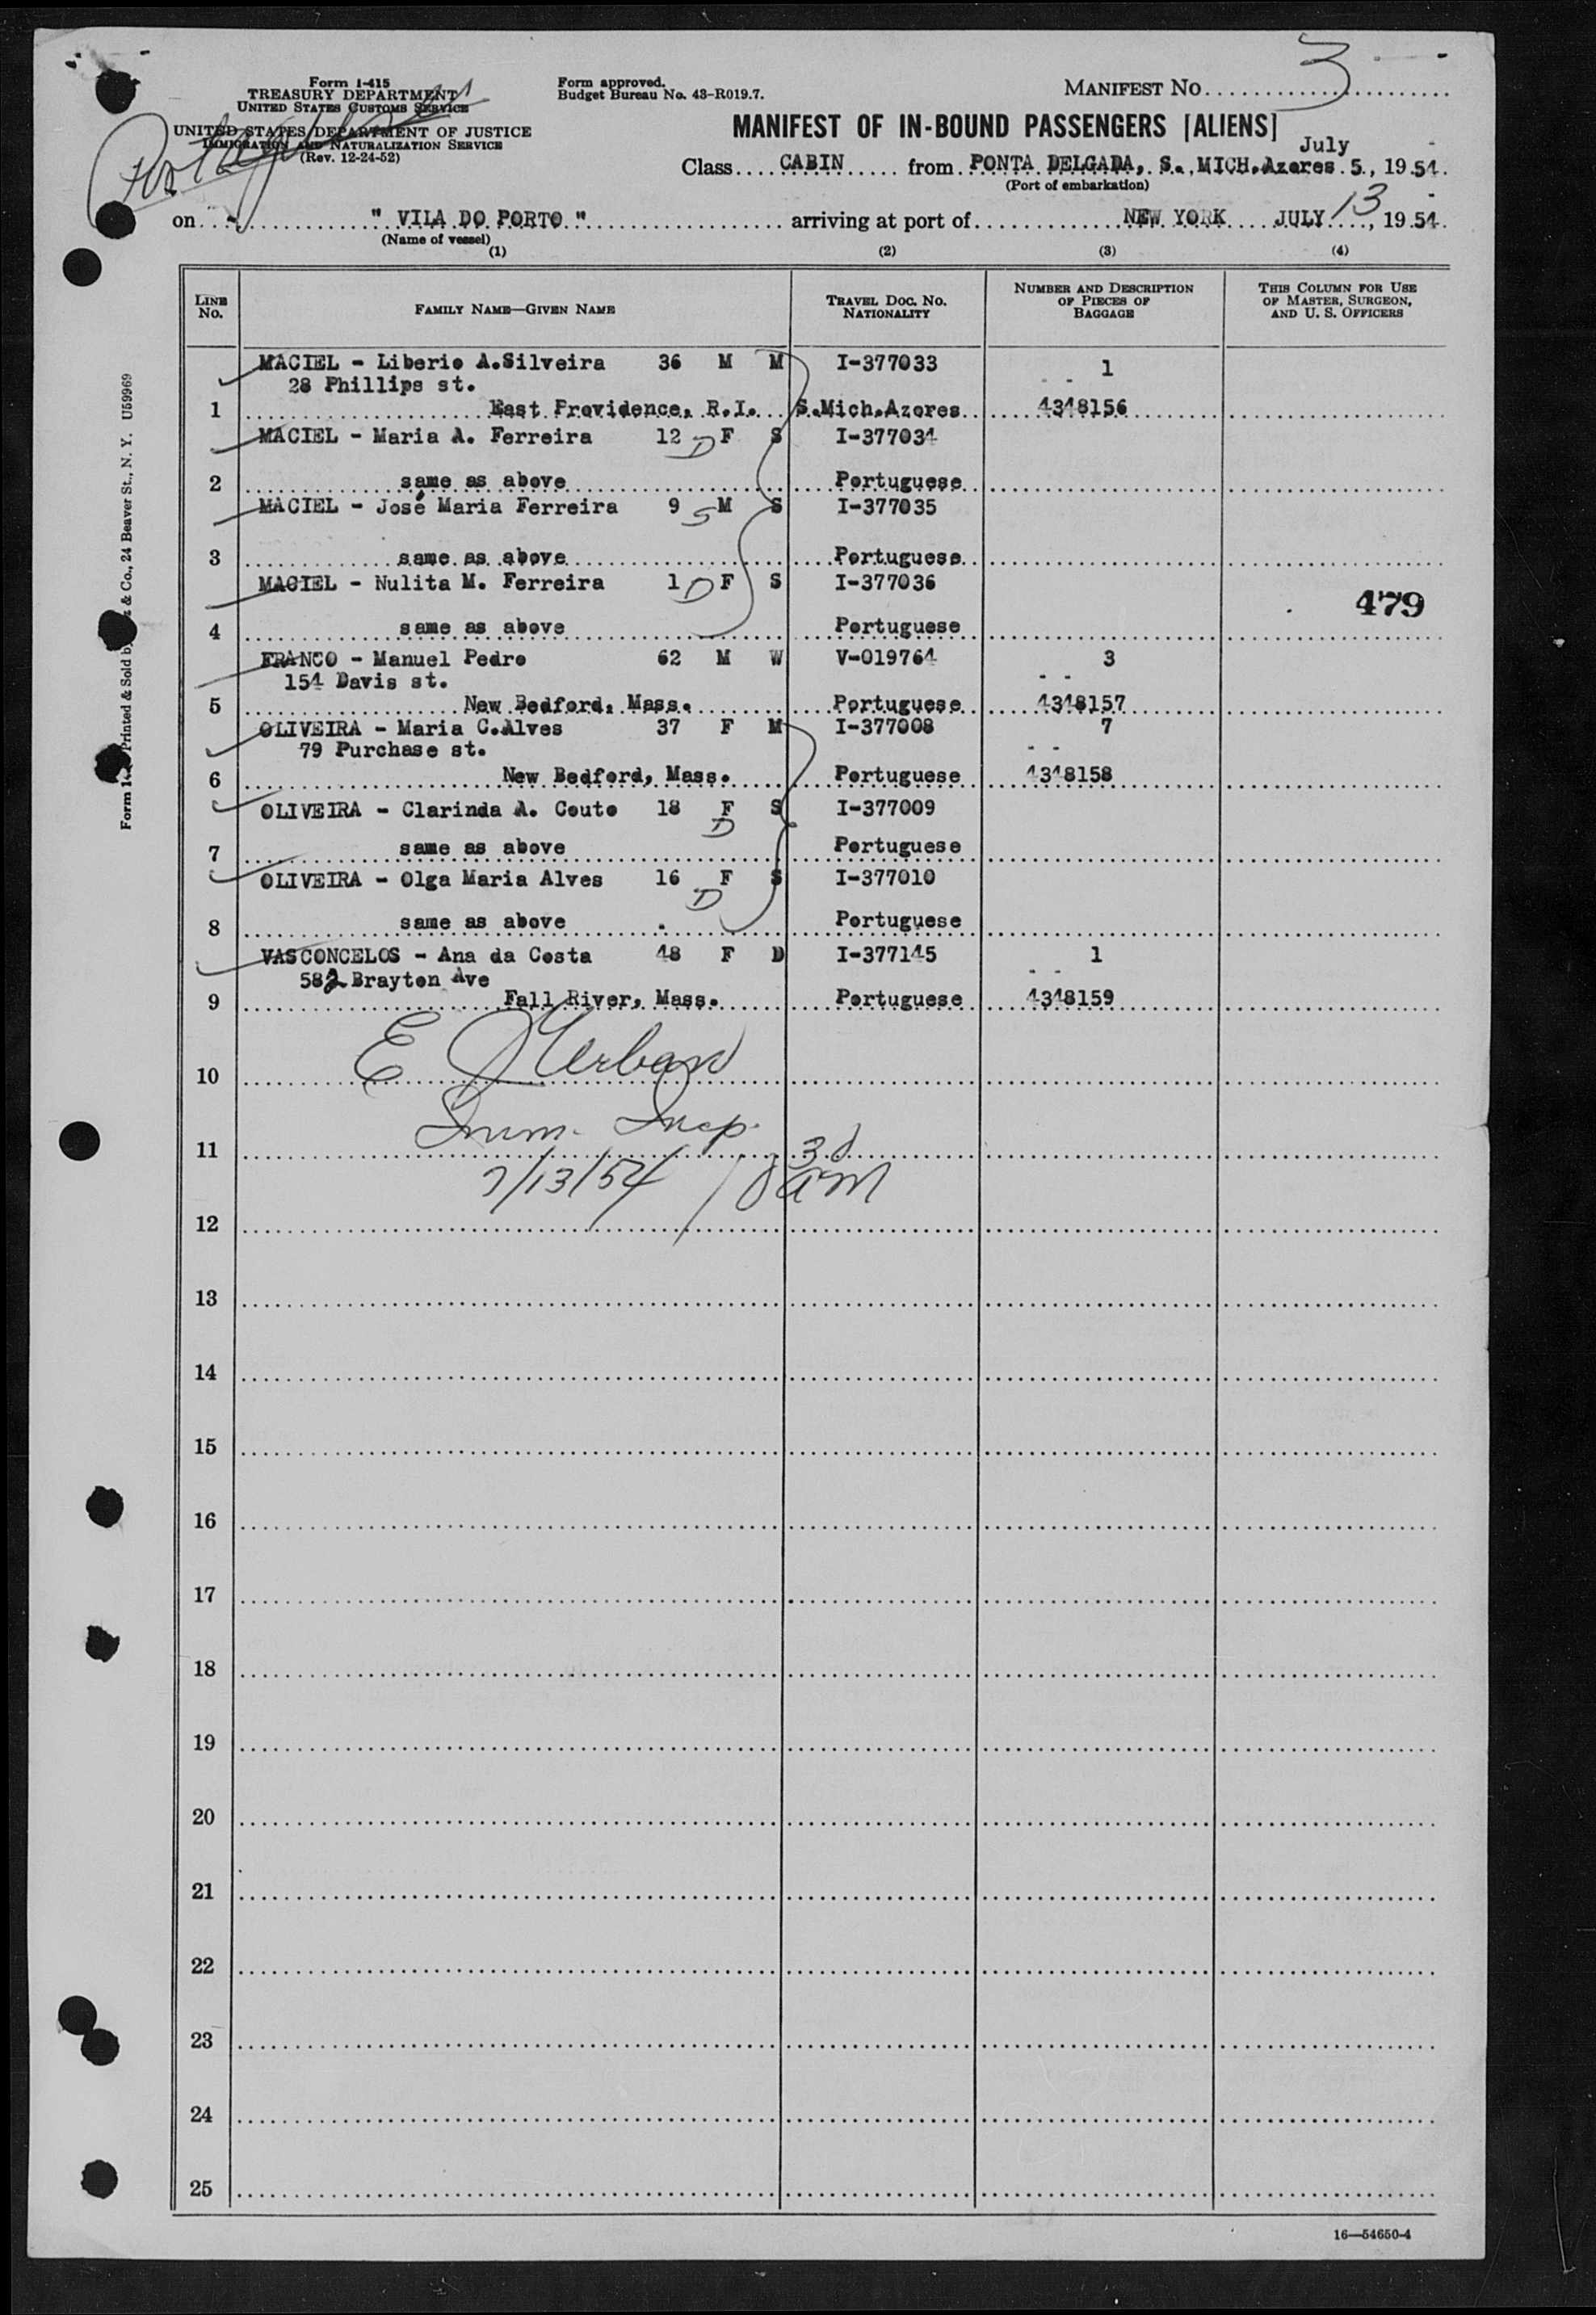 Form I-415
TREASURY DEPARTMENT
UNITED STATES CUSTOMS SERVICE
UNITED STATES DEPARTMENT OF JUSTICE
IMMIGRATION AND NATURALIZATION SERVICE
(Rev. 12-24-52)
Form approved.
Budget Bureau No. 43-R019.7.
MANIFEST No. 3
MANIFEST OF IN-BOUND PASSENGERS [ALIENS]
Class CABIN from PONTA DELGADA, S., MICH.Azores July 5, 1954
(Port of embarkation)
on " VILA DO PORTO " arriving at port of NEW YORK JULY 13, 1954
(Name of vessel)
(1) (2) (3) (4)
LINE No. FAMILY NAME—GIVEN NAME TRAVEL DOC. NO. NATIONALITY NUMBER AND DESCRIPTION OF PIECES OF BAGGAGE THIS COLUMN FOR USE OF MASTER, SURGEON, AND U. S. OFFICERS
MACIEL - Liberio A.Silveira 36 M M I-377033 1
28 Phillips st.
1 East Providence, R.I. S.Mich.Azores 4348156
MACIEL - Maria A. Ferreira 12 D F S I-377034
2 same as above Portuguese
MACIEL - José Maria Ferreira 9 S M S I-377035
3 same as above Portuguese
MACIEL - Nulita M. Ferreira 1 D F S I-377036
479
4 same as above Portuguese
FRANCO - Manuel Pedro 62 M W V-019764 3
154 Davis st.
5 New Bedford, Mass. Portuguese 4348157
OLIVEIRA - Maria C.Alves 37 F M I-377008 7
79 Purchase st.
6 New Bedford, Mass. Portuguese 4348158
OLIVEIRA - Clarinda A. Couto 18 F S I-377009
D
7 same as above Portuguese
OLIVEIRA - Olga Maria Alves 16 F S I-377010
D
8 same as above Portuguese
VASCONCELOS - Ana da Costa 48 F D I-377145 1
582 Brayton Ave
9 Fall River, Mass. Portuguese 4348159
E J Urban
10
Imm. Insp.
11
7/13/54 10 30 AM
12
13
14
15
16
17
18
19
20
21
22
23
24
25
16—54650-4
Printed & Sold by & Co., 24 Beaver St., N. Y. U59969